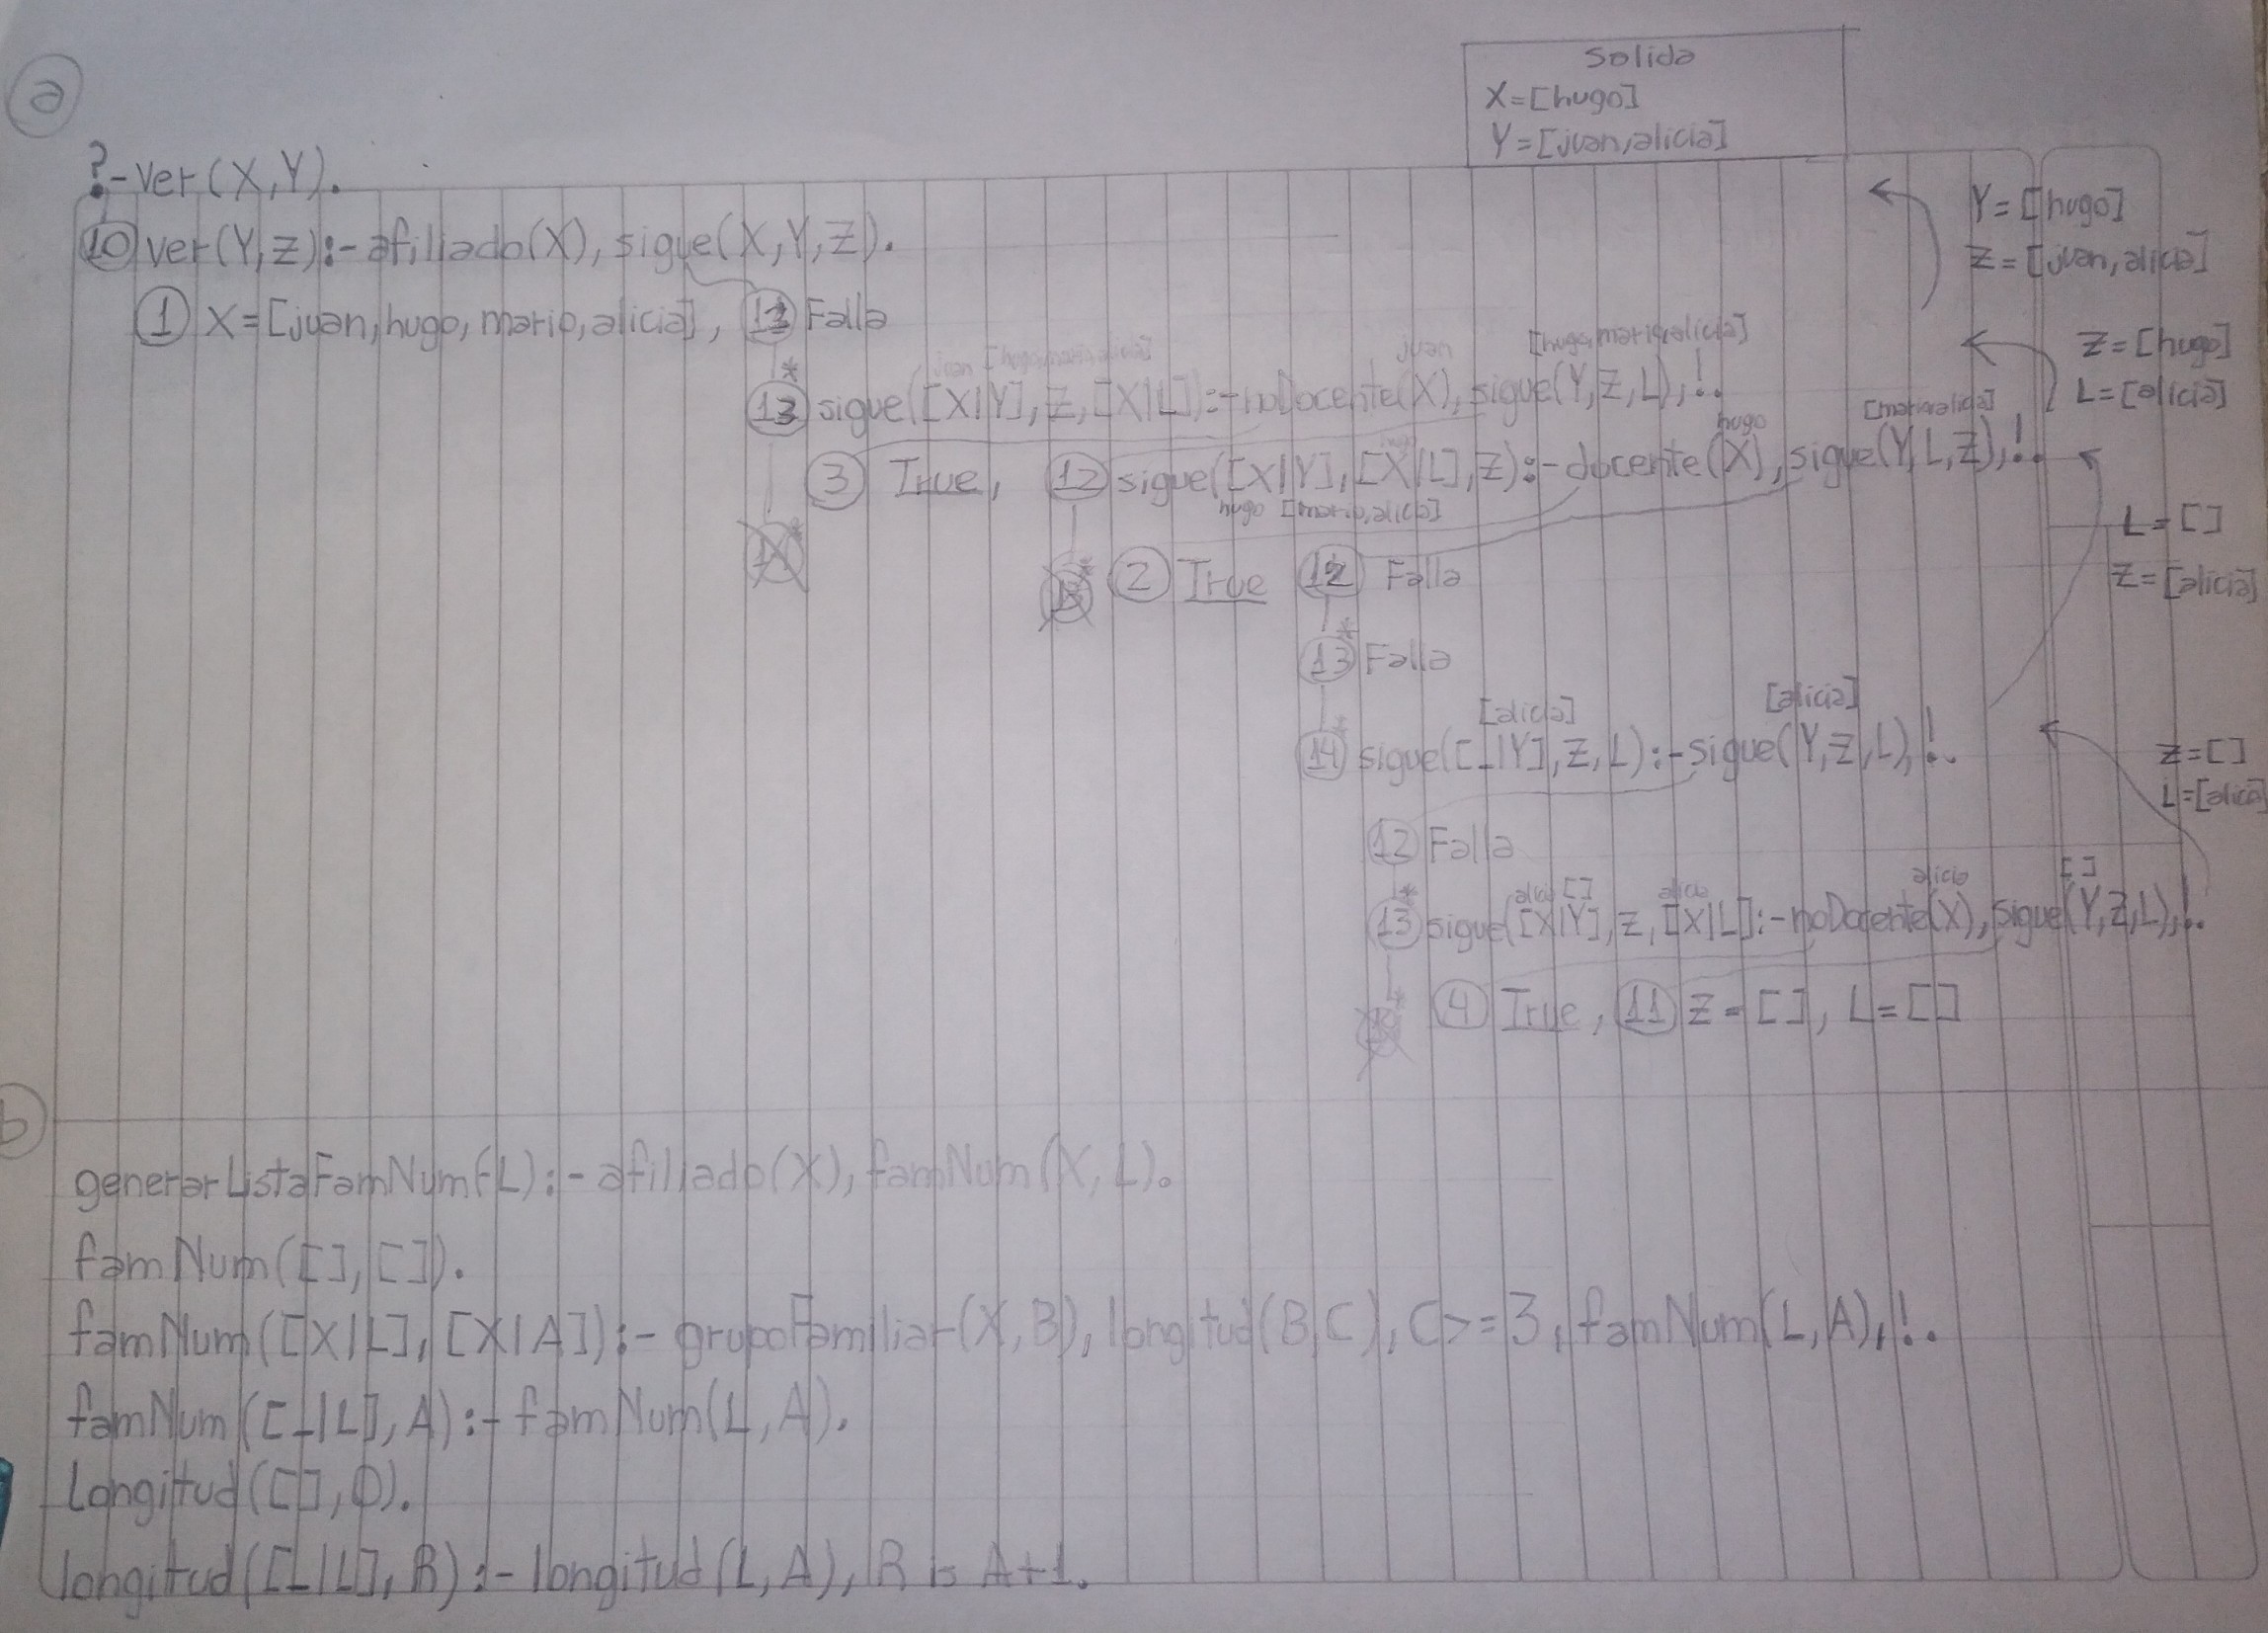 a
Salida
X=[hugo]
Y=[juan,alicia]
?-ver(X,Y).
10 ver(Y,Z):-afiliado(X),sigue(X,Y,Z).
Y=[hugo]
Z=[juan,alicia]
1 X=[juan,hugo,mario,alicia], 12 Falla
Z=[hugo]
L=[alicia]
juan [hugo,mario,alicia] juan [hugo,mario,alicia]
* 13 sigue([X|Y],Z,[X|L]):-noDocente(X),sigue(Y,Z,L),!.
hugo hugo [mario,alicia]
3 True, 12 sigue([X|Y],[X|L],Z):-docente(X),sigue(Y,L,Z),!.
hugo [mario,alicia]
L=[]
Z=[alicia]
2 True 12 Falla
* 13 Falla
[alicia] [alicia]
* 14 sigue([_|Y],Z,L):-sigue(Y,Z,L),!.
Z=[]
L=[alicia]
12 Falla
alicia [] alicia alicia []
* 13 sigue([X|Y],Z,[X|L]:-noDocente(X),sigue(Y,Z,L),!.
4 True, 11 Z=[], L=[]
b
generarListaFamNum(L):-afiliado(X),famNum(X,L).
famNum([],[]).
famNum([X|L],[X|A]):-grupoFamiliar(X,B),longitud(B,C),C>=3,famNum(L,A),!.
famNum([_|L],A):-famNum(L,A).
longitud([],0).
longitud([_|L],R):-longitud(L,A),R is A+1.